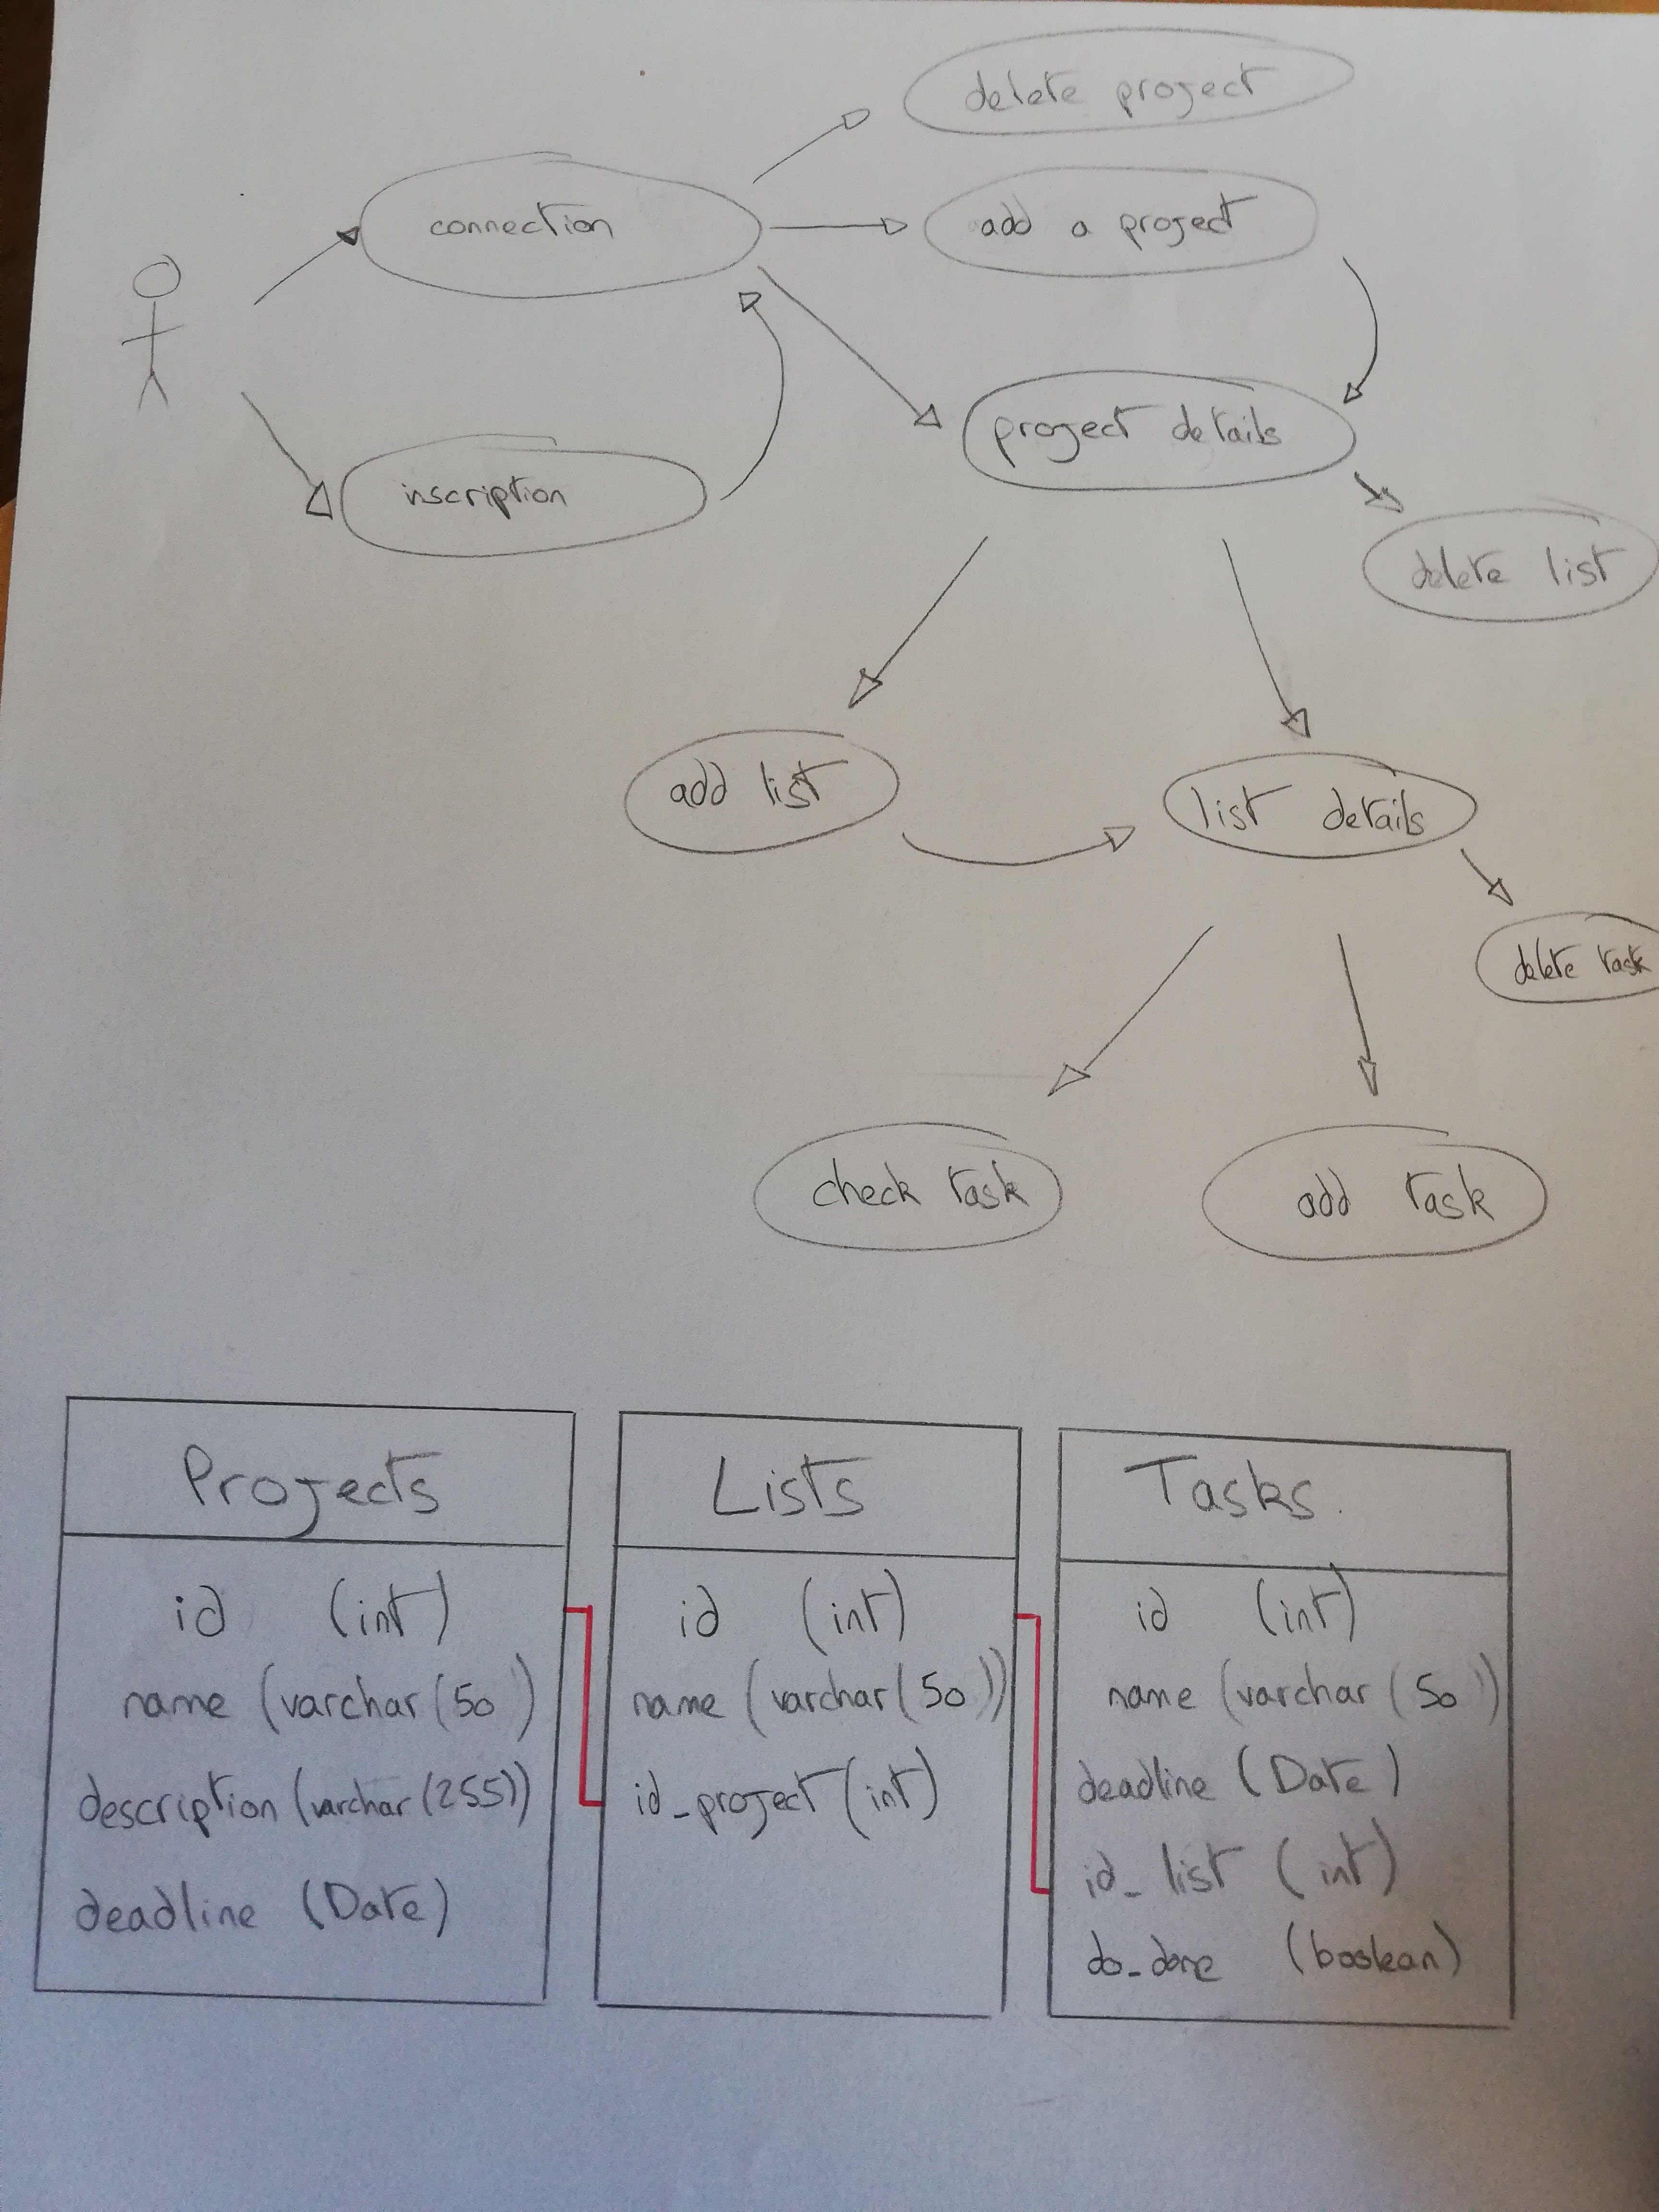 delete project
connection
add a project
project details
inscription
delete list
add list
list details
delete task
check task
add task
Projects
id (int)
name (varchar(50)
description (varchar(255))
deadline (Date)
Lists
id (int)
name (varchar(50))
id_project (int)
Tasks.
id (int)
name (varchar(50))
deadline (Date)
id_list (int)
do_done (boolean)